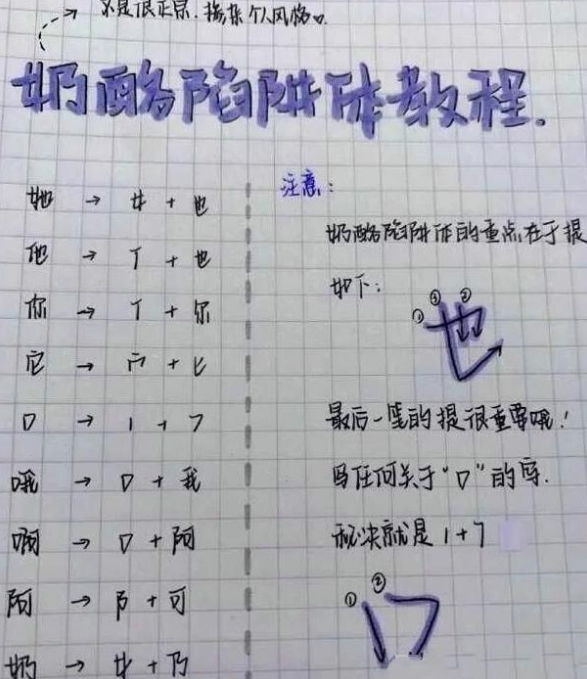 不是很正宗.掺杂个人风格。
奶酪陷阱体教程.
她 → 女 + 也
他 → 亻 + 也
你 → 亻 + 尔
它 → 宀 + 匕
口 → 1 + 7
哦 → 口 + 我
啊 → 口 + 阿
阿 → 阝 + 可
奶 → 女 + 乃
注意:
奶酪陷阱体的重点在于提
如下:
① ③ ② 也
最后一笔的提很重要哦!
写任何关于“口”的字.
秘诀就是 1+7
① ② 口